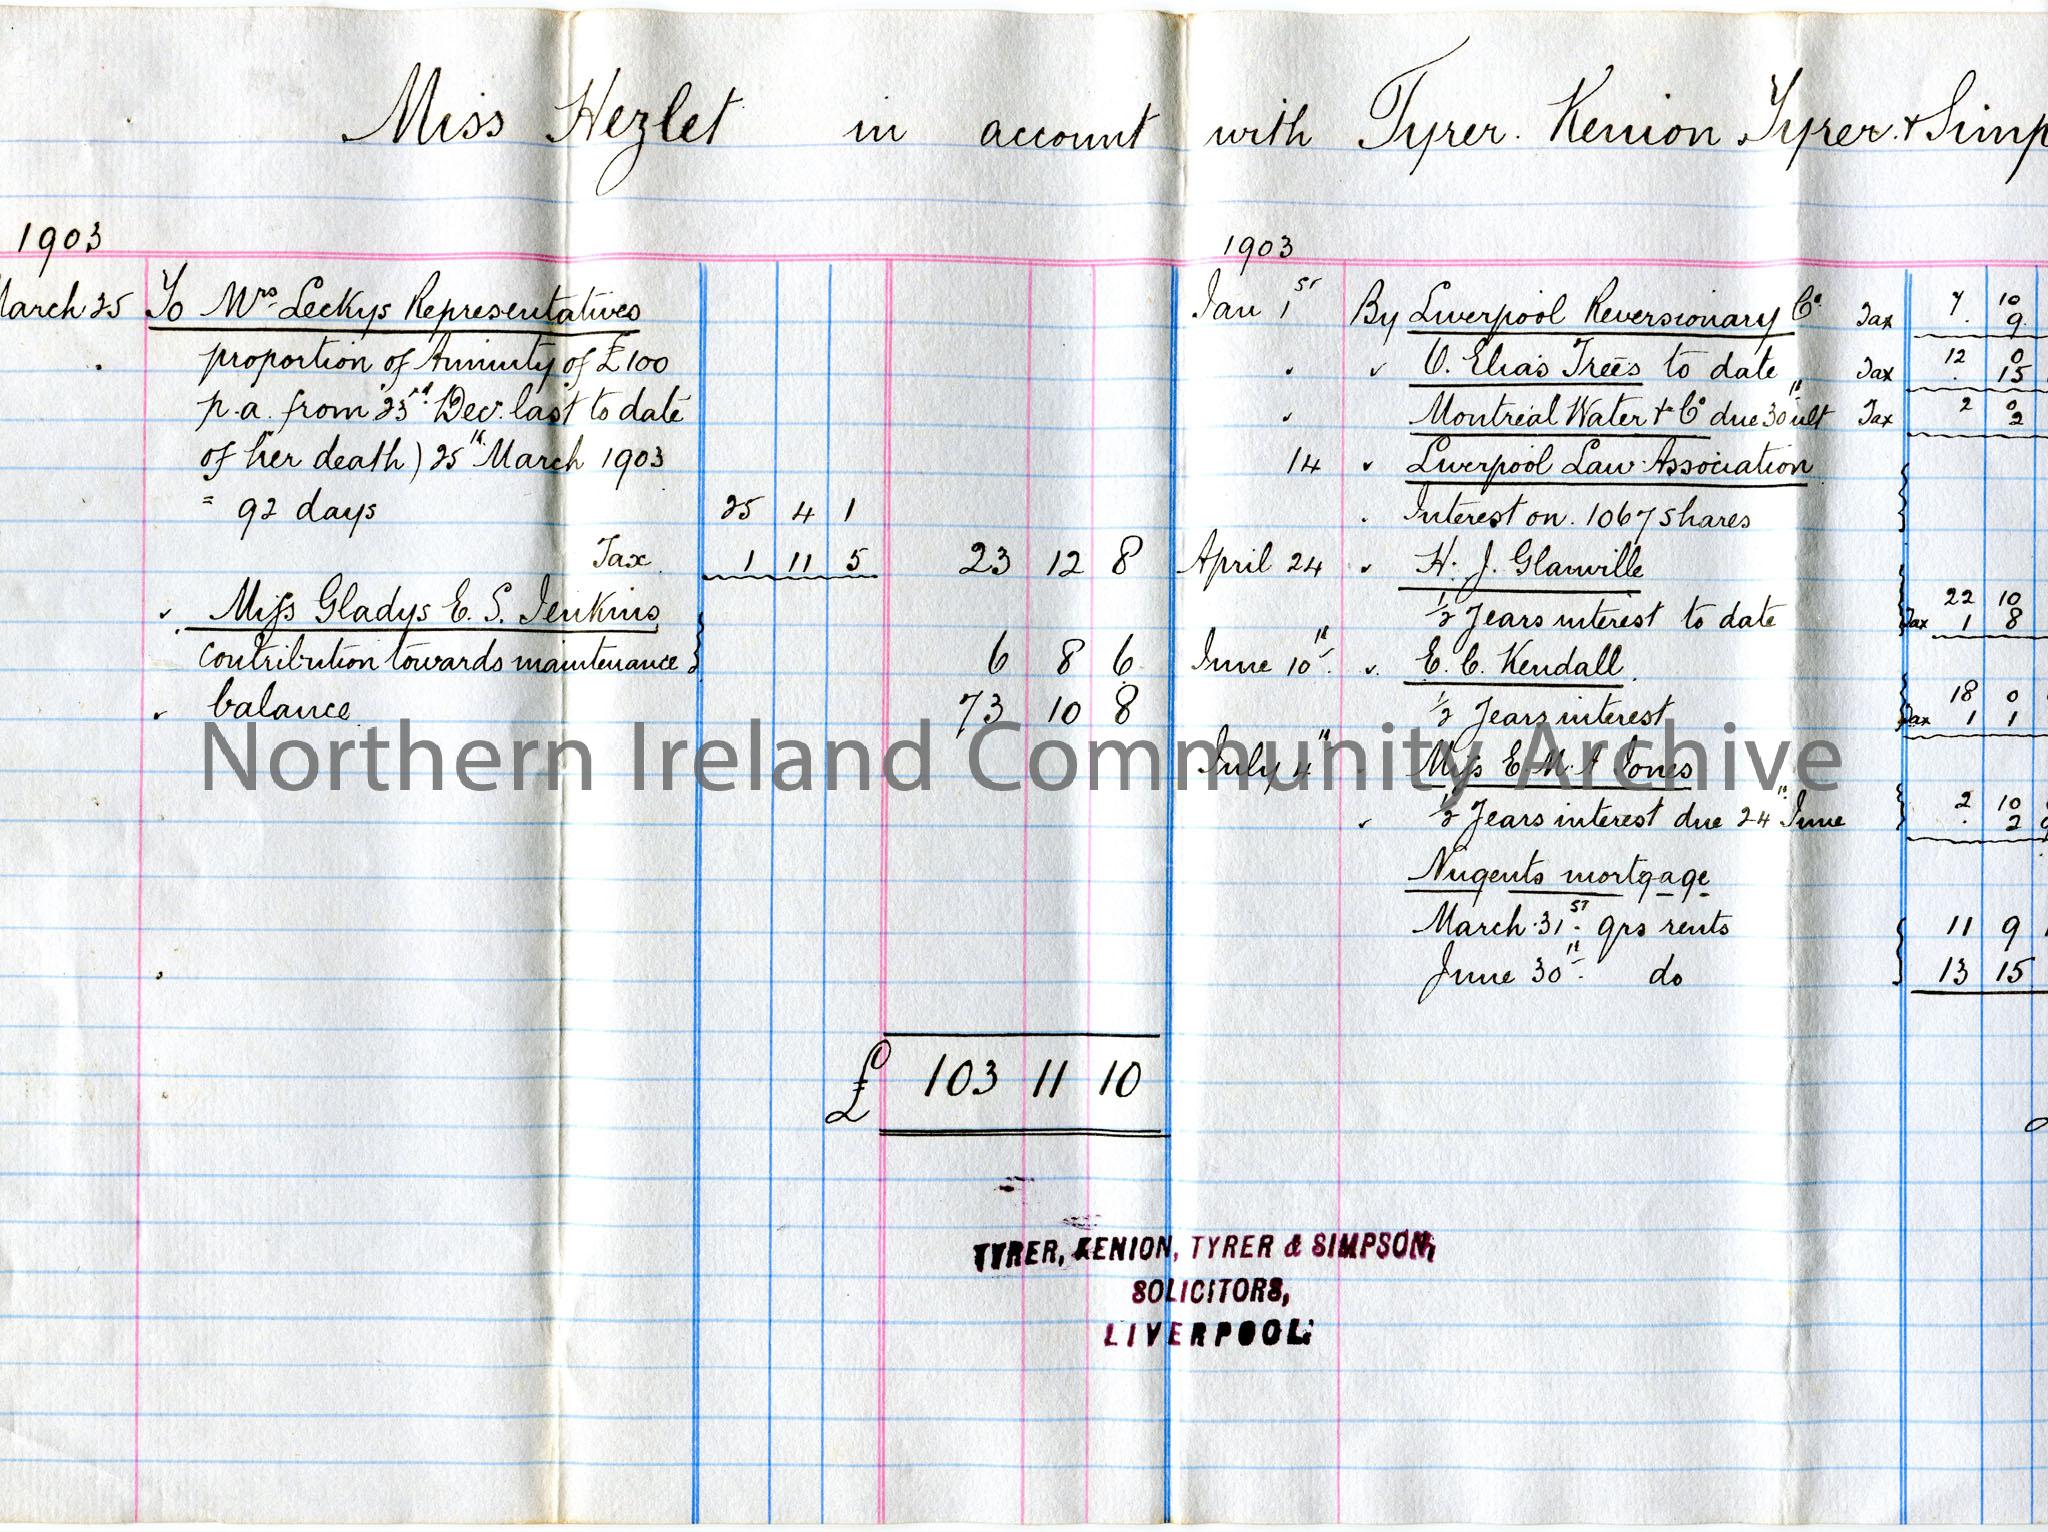 Miss Hezlet in account with Tyrer. Kenion Tyrer & Simp
1903
March 25 To Mrs Leckys Representatives
proportion of Annuity of £100
p.a. from 23rd Decr. last to date
of her death) 25th March 1903
= 92 days 25 4 1
Tax 1 11 5 23 12 8
" Miss Gladys E. S. Jenkins
contribution towards maintenance } 6 8 6
" balance 73 10 8
£ 103 11 10
1903
Jan 1st By Liverpool Reversionary Co 7 10
Tax 9
" " O. Elias Trees to date 12 0
Tax 15
" Montreal Water & Co due 30th ult 2 0
Tax 2
14 " Liverpool Law Association
Interest on 1067 shares
April 24 " H. J. Glanville
1/2 Years interest to date 22 10
Tax 1 8
June 10th " E. C. Kendall
1/2 Years interest 18 0
Tax 1 1
July 4th " Miss E M A Jones
" 1/2 Years interest due 24th June 2 10
2
Nugents mortgage
March 31st qrs rents 11 9
June 30th do 13 15
TYRER, KENION, TYRER & SIMPSON,
SOLICITORS,
LIVERPOOL.
Northern Ireland Community Archive